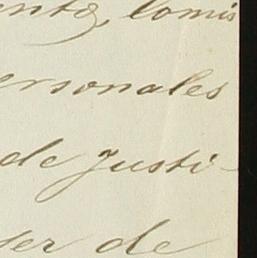 ento, comis
ersonales
de Justi-
ter de